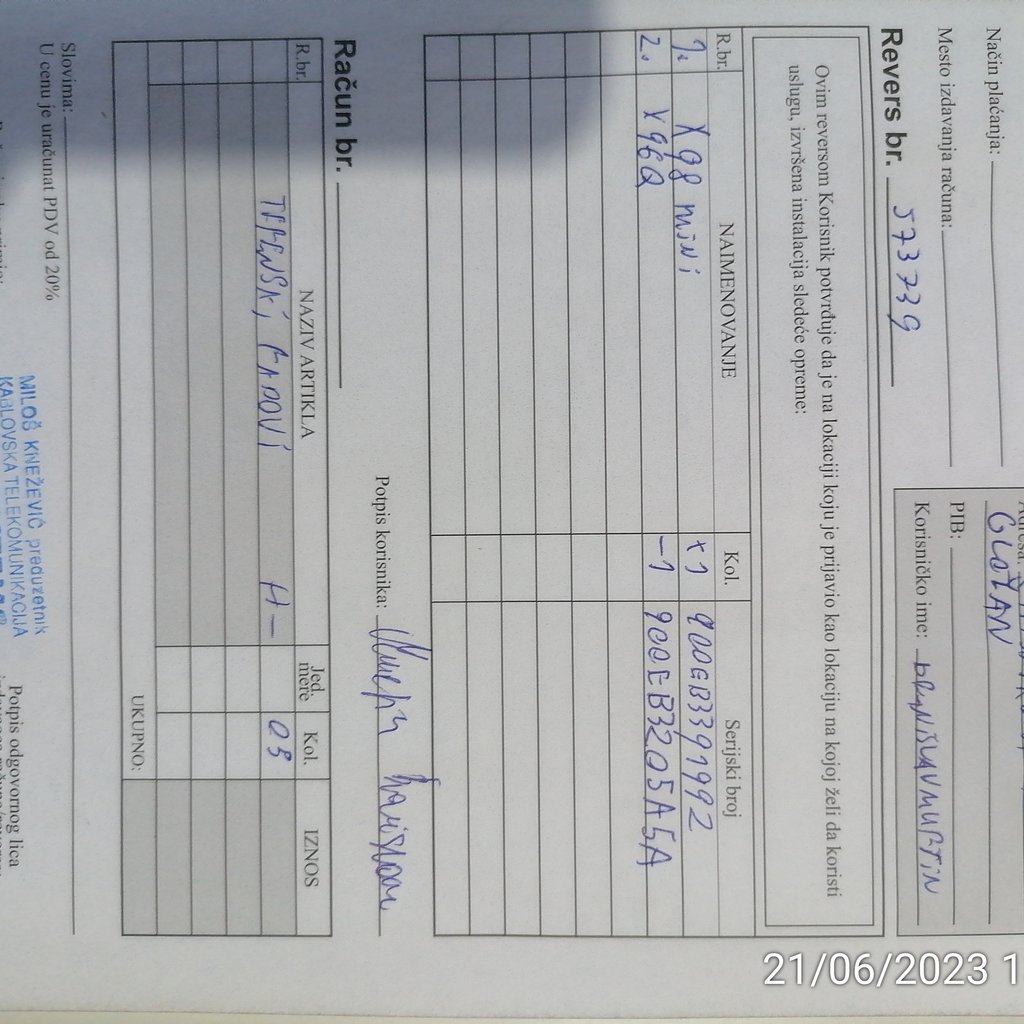 Način plaćanja:
Mesto izdavanja računa:
Adresa:
GLOŽAN
PIB:
Korisničko ime: BRANISLAVMURTIN
Revers br. 573739
Ovim reversom Korisnik potvrđuje da je na lokaciji koju je prijavio kao lokaciju na kojoj želi da koristi
uslugu, izvršena instalacija sledeće opreme:
R.br. NAIMENOVANJE Kol. Serijski broj
1. X98 mini +1 900EB3391992
2. X96Q -1 900EB3205A5A
Potpis korisnika:
Račun br.
R.br. NAZIV ARTIKLA Jed. mere Kol. IZNOS
TERENSKI RADOVI H- 05
UKUPNO:
Slovima:
U cenu je uračunat PDV od 20%
MILOŠ KNEŽEVIĆ preduzetnik
KABLOVSKA TELEKOMUNIKACIJA
Potpis odgovornog lica
21/06/2023 1